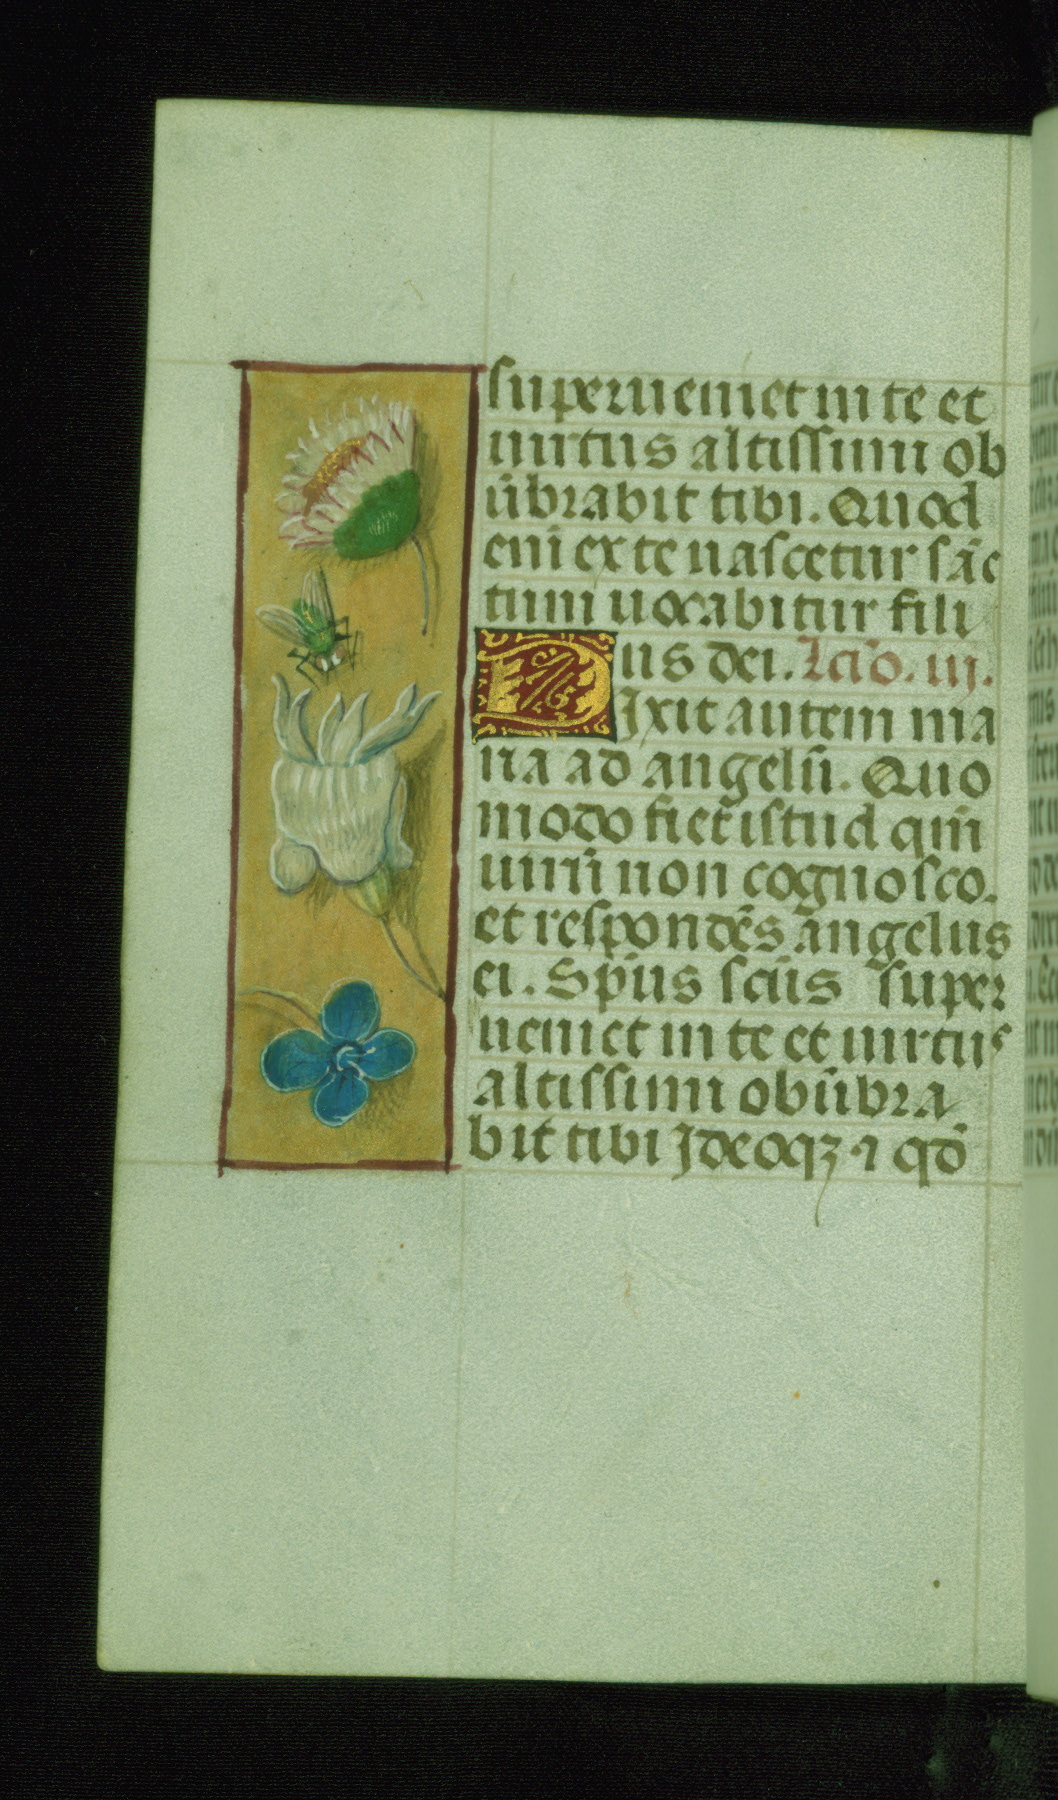 superueniet in te et
uirtus altissimi ob
ūbrabit tibi. Quod
eni̅ ex te nascetur sāc
tum uocabitur fili
us dei. Lcı̅o. iij.
Dixit autem ma
ria ad angelū. Quo
modo fiet istud qm̅
uirū non cognosco.
et respondēs angelus
ei. Spūs scūs super
ueniet in te et uirtus
altissimi obūbra
bit tibi Jdeoqꝫ ⁊ qd̅